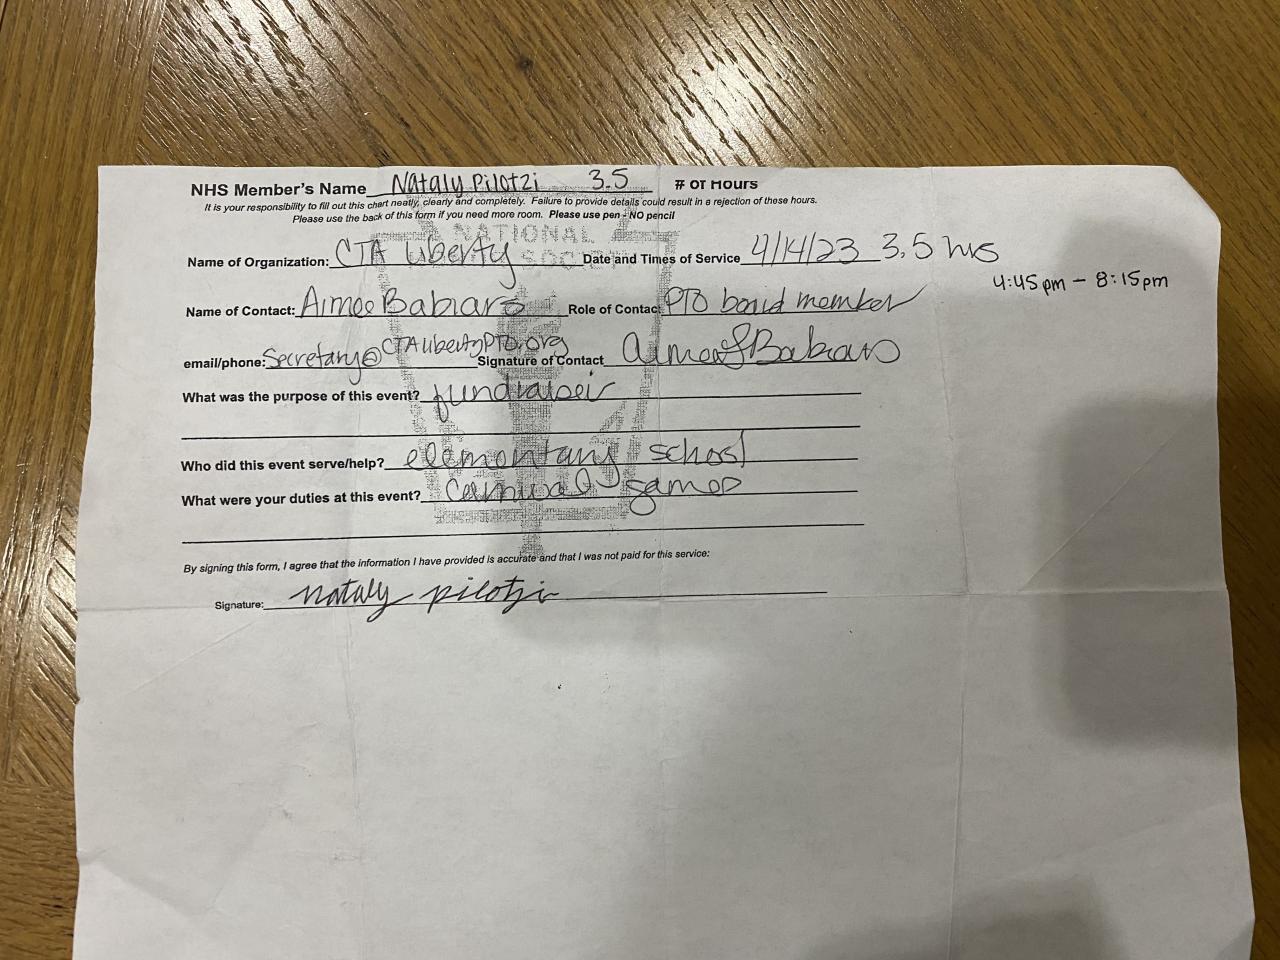 NHS Member's Name Nataly Pilotzi 3.5 # of Hours
It is your responsibility to fill out this chart neatly, clearly and completely. Failure to provide details could result in a rejection of these hours.
Please use the back of this form if you need more room. Please use pen - NO pencil
NATIONAL
SOCIETY
Name of Organization: CTA Liberty Date and Times of Service 4/14/23 3.5 hrs
4:45pm - 8:15pm
Name of Contact: Aimee Babiars Role of Contac PTO board member
email/phone: Secretary@CTALibertyPTO.org Signature of Contact Aimee Babiars
What was the purpose of this event? fundraiser
Who did this event serve/help? elementary school
What were your duties at this event? Carnival games
By signing this form, I agree that the information I have provided is accurate and that I was not paid for this service:
Signature: nataly pilotzi